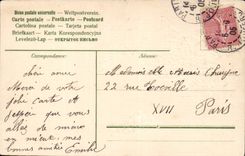 Union postale universelle. — Weltpostverein.
Carte postale — Postkarte — Postcard
Cartolina postale — Tarjeta postal
Briefkaart — Karta Korespondencyjna
Levelező-Lap — ОТКРЫТОЕ ПИСЬМО
chère amie
Merci de votre
jolie carte et
j'espère que vous
allez de mieux
en mieux, mes
bons baisers Emilie
Mademoiselle Marie
22 rue
XVII
Paris